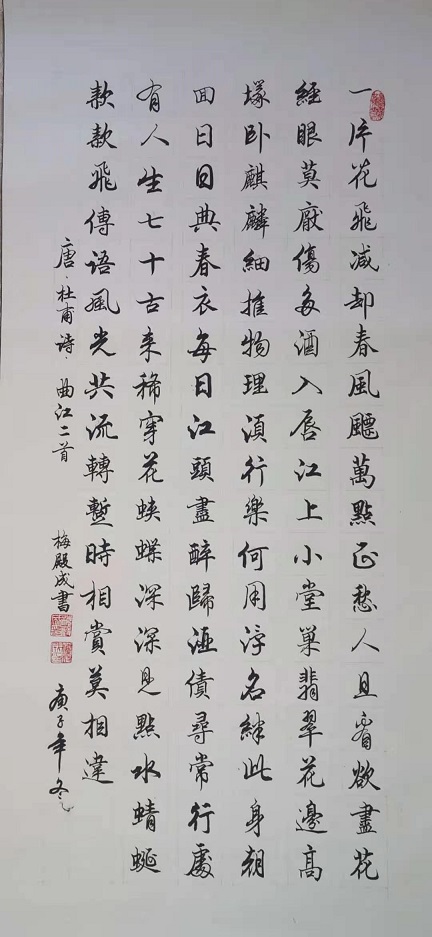 一片花飛減却春風飄萬點正愁人且看欲盡花
經眼莫厭傷多酒入唇江上小堂巢翡翠花邊高
塚卧麒麟細推物理須行樂何用浮名絆此身朝
回日日典春衣每日江頭盡醉歸酒債尋常行處
有人生七十古来稀穿花蛱蝶深深見點水蜻蜓
款款飛傳語風光共流轉暫時相賞莫相違
唐·杜甫詩·曲江二首 梅殿成書 庚子年冬